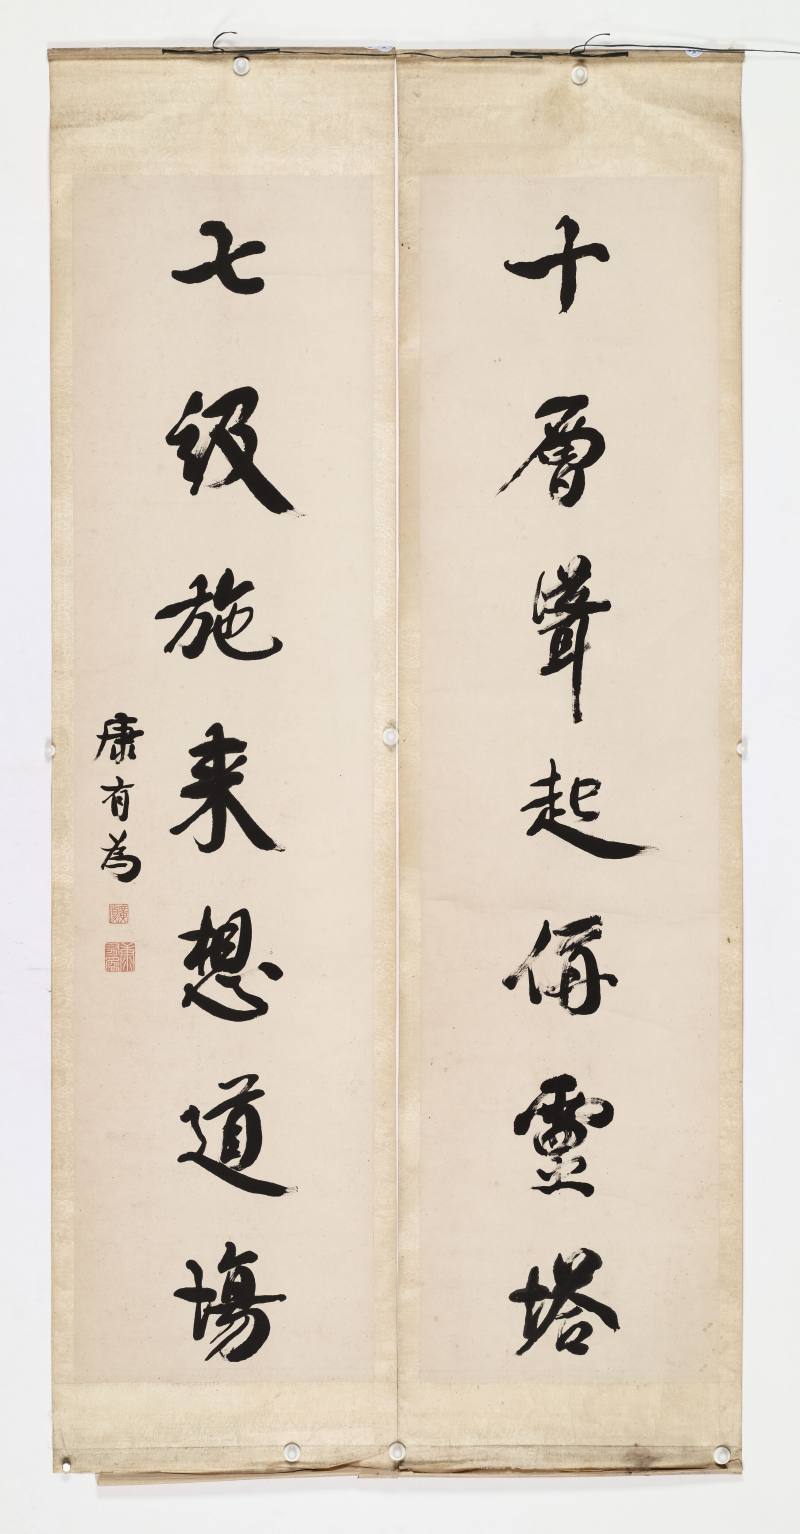 十層聳起侢靈塔
七級施来想道場
康有為